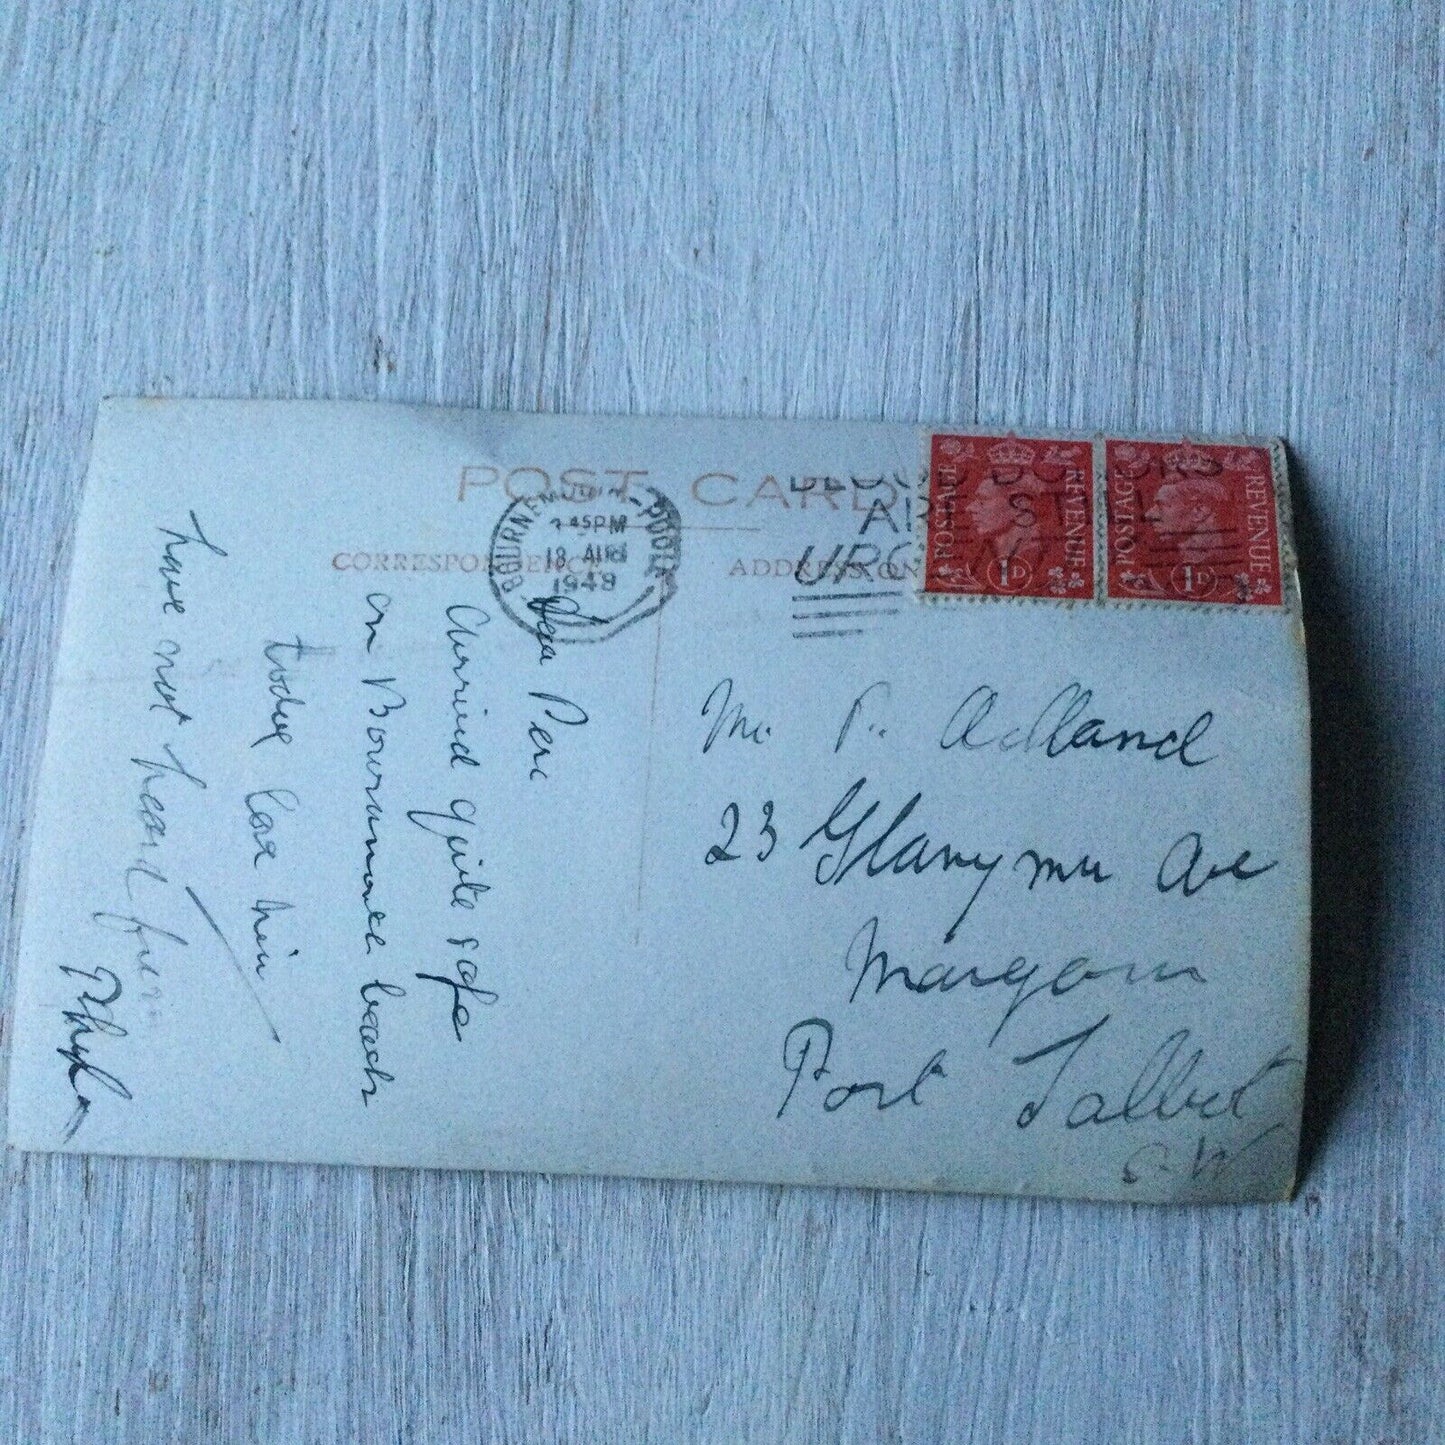 POST CARD
CORRESPONDENCE
ADDRESS ON
BOURNEMOUTH-POOLE
45PM
18 AUG
1948
BLOOD DONORS
ARE STILL
URGENT
POSTAGE REVENUE
1D
POSTAGE REVENUE
1D
Dear Perc
Arrived quite safe
on Bournemouth beach
today
have not heard from
Mr. P. Adland
23 Glanymor Ave
Margam
Port Talbot
S. W